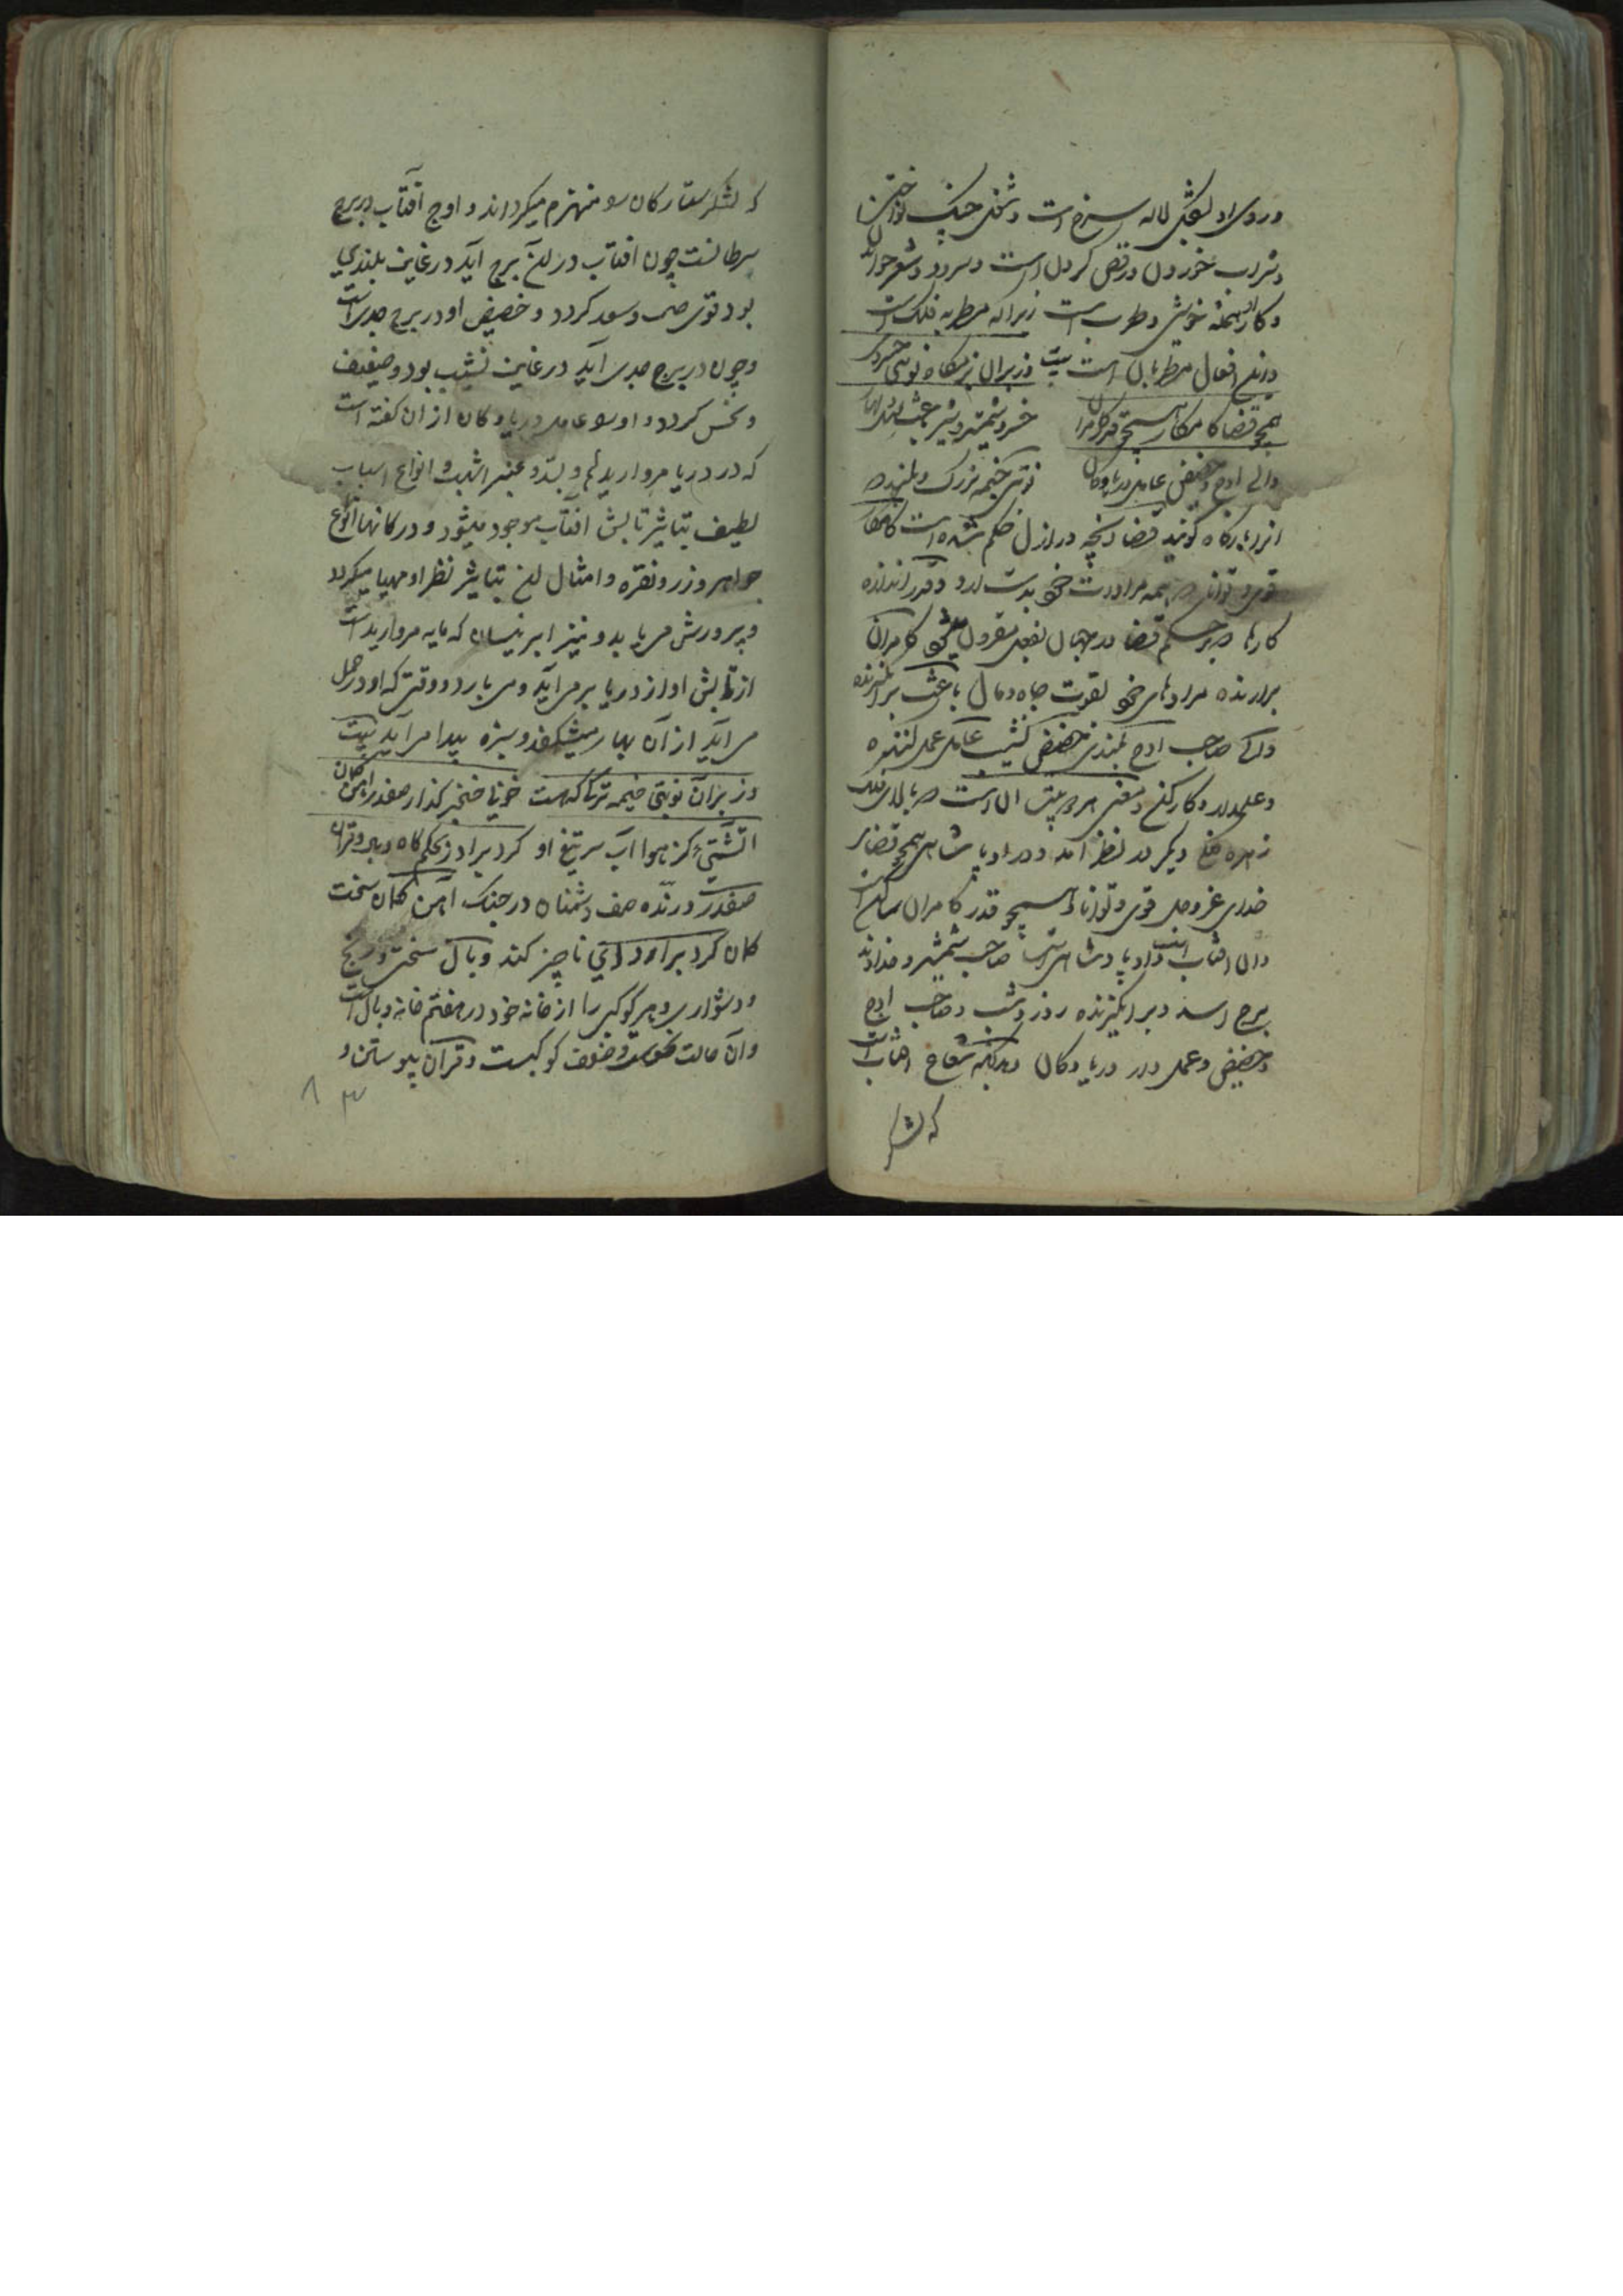 و روی او بشکل لاله سرخ است و شغل چنک نواختن
و شراب خوردن و رقص کردن است و سرود و شعر خواندن
و کار همه خوشی و طرب است زیرا که مطربه فلک است
و این افعال مطربان است بیت وز بر آن بزمگاه نوبتی خسروی
همچو قضا کامکار همچو قدر کامران خسرو شمشیر و شیر
والی اوج و حضیض عامل دریا و کان نوبتی خیمه بزرگ و بلند که
انرا بارگاه گویند قضا آنچه در ازل حکم شده است کامکار
قوی و توانا که همه مرادات خود بدست آرد و قدر اندازه
کارها که بر حکم قضا در جهان بفعل مقرون میشود کامران
برارنده مرادهای خود بقوت جاه و مال باعث برانگیزنده
والی صاحب اوج بلندی حضیض نشیب عامل عمل کننده
و عملدار و کارکن و معنی هر دو بیت آن است که بالای فلک
زهره فلک دیگر در نظر آمد و در او پادشاهی همچو قضای
خدای عز وجل قوی و توانا و همچو قدر کامران ساکن است
و آن افتاب است و او پادشاهی است صاحب شمشیر و خداوند
برج اسد و برانگیزنده روز و شب و صاحب اوج
و حضیض و عمل در دریا و کان و بدانکه شعاع افتاب است
که لشکر
که لشکر ستارکان را منهزم میکرداند و اوج آفتاب در برج
سرطانست چون افتاب در این برج آید در غایت بلندی
بود قوی و سعد کردد و حضیض او در برج جدی است
و چون در برج جدی آید در غایت نشیب بود و ضعیف
و نحس کردد و او را عامل دریا و کان از ان کفته است
که در دریا مروارید و بسد و عنبر اشهب و انواع اسباب
لطیف بتاثیر تابش افتاب موجود میشود و در کانها انواع
جواهر و زر و نقره و امثال این بتاثیر نظر او مهیا میکردد
و پرورش می یابد و نیز ابر نیسان که مایه مروارید است
از تابش او از دریا بر می آید و می بارد و وقتی که او در حمل
می آید از آن بهار میشکفد و سبزه پیدا می آید بیت
وز بر آن نوبتی خیمه ترکی که هست خونی خنجر کذار صفدر آهن کمان
آتشئی کز هوا آب سر تیغ او کرد برآرد بحکم کاه وبال و قران
صفدر درنده صف دشمنان در جنک آهن کمان سخت
کمان کرد برآرد ای ناچیز کند وبال سختی و رنج
و دشواری و هر کوکبی را از خانه خود در هفتم خانه وبال است
و آن حالت نحوست و ضعف کوکبست و قران پیوستن و